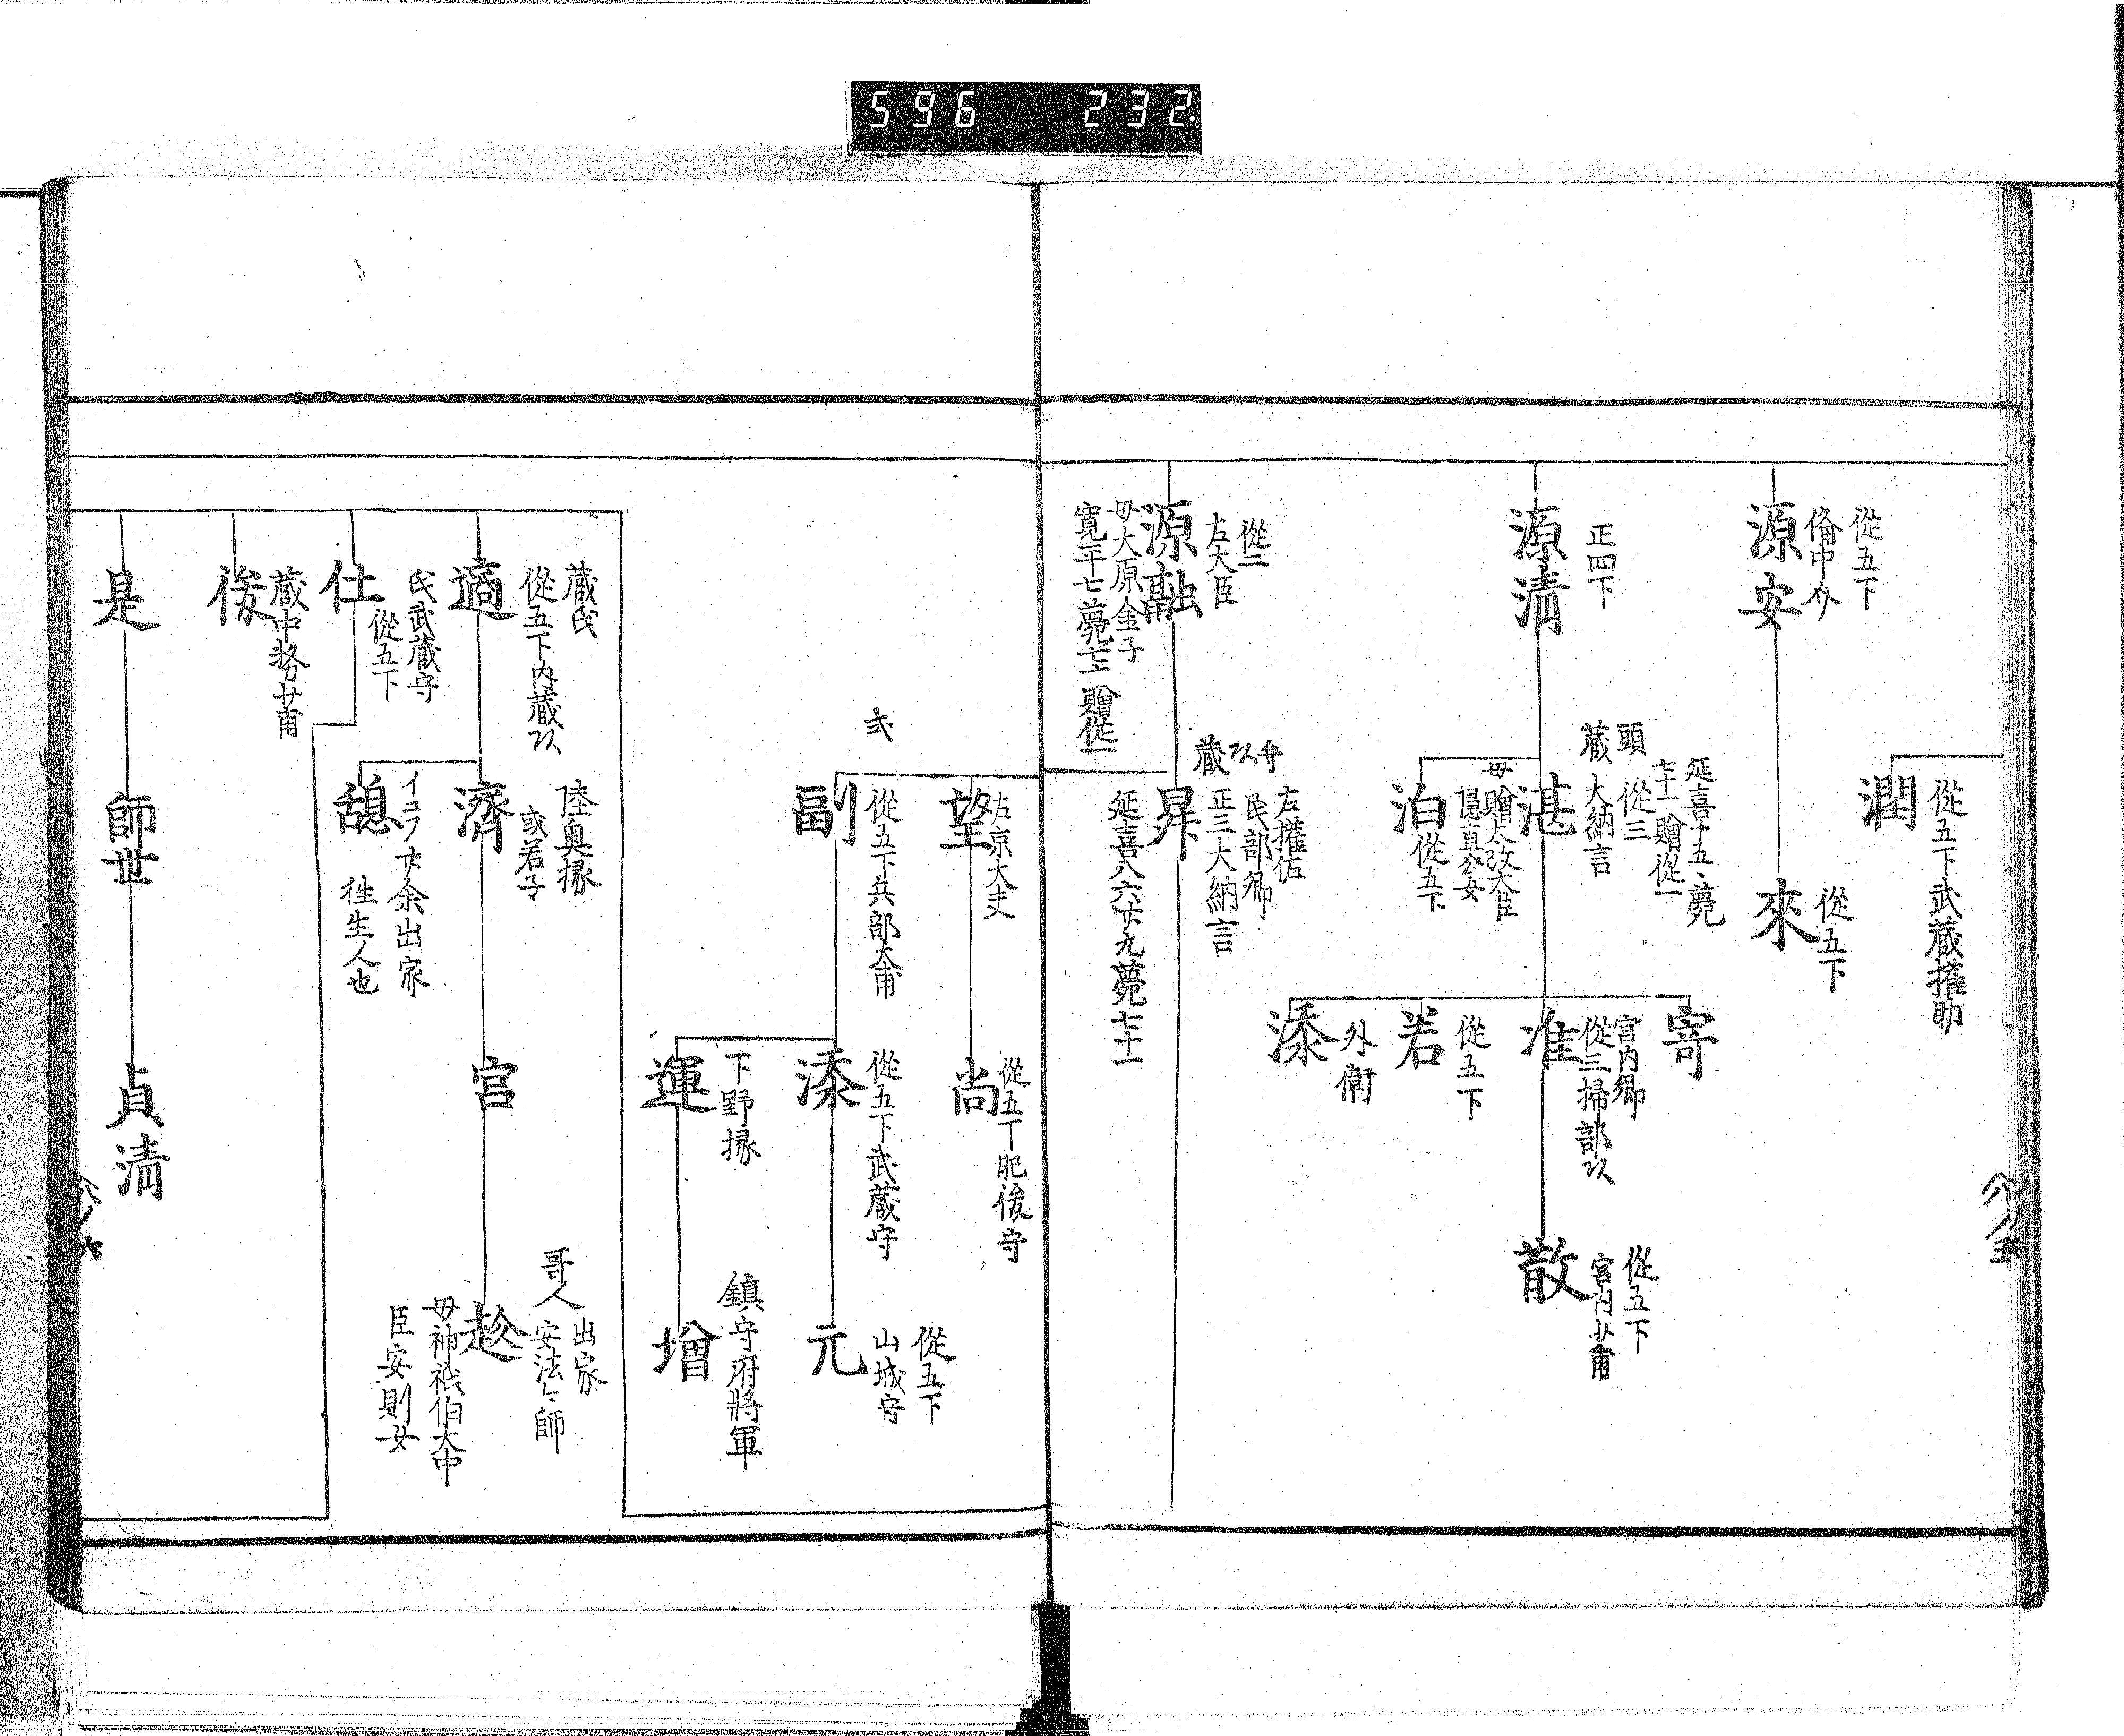 596 232.
潤
從五下武蔵権助
從五下
俻中介
源安
來
從五下
正四下
源清
頭
蔵
延喜十五、薨
七十一贈從一
從三
大納言
湛
母贈太政大臣
泊
從五下
寄
宮内卿
從三掃部以
准
從五下
若
外衛
添
從五下
宮内少甫
散
從二
左大臣
源融
母大原金子
寛平七薨七二贈從一
弁
以
蔵
左權佐
民部卿
正三大納言
昇
延喜八六廿九薨七十一
望
左京大夫
從五下肥後守
尚
弍
從五下兵部大甫
副
從五下武蔵守
添
從五下
山城守
元
下野掾
運
鎮守府將軍
増
蔵民
從五下内蔵以
適
陸奥掾
或若子
濟
イコフ
廿余出家
往生人也
憩
宮
哥人
出家
安法々師
趁
母神祇伯大中
臣安則女
民武蔵守
從五下
仕
蔵中務少甫
後
是
師世
貞清